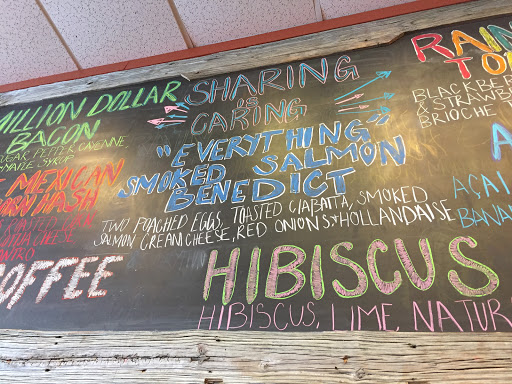 MILLION DOLLAR
BACON
SUGAR, PEPPER & CAYENNE
MAPLE SYRUP
MEXICAN
CORN HASH
CHEESE
COFFEE
SHARING
is
CARING
"EVERYTHING"
SMOKED SALMON
BENEDICT
TWO POACHED EGGS, TOASTED CIABATTA, SMOKED
SALMON CREAM CHEESE, RED ONIONS & HOLLANDAISE
HIBISCUS
HIBISCUS, LIME, NATUR
RAIN
TO
BLACKBER
& STRAWB
BRIOCHE T
A
AÇAI
BANA